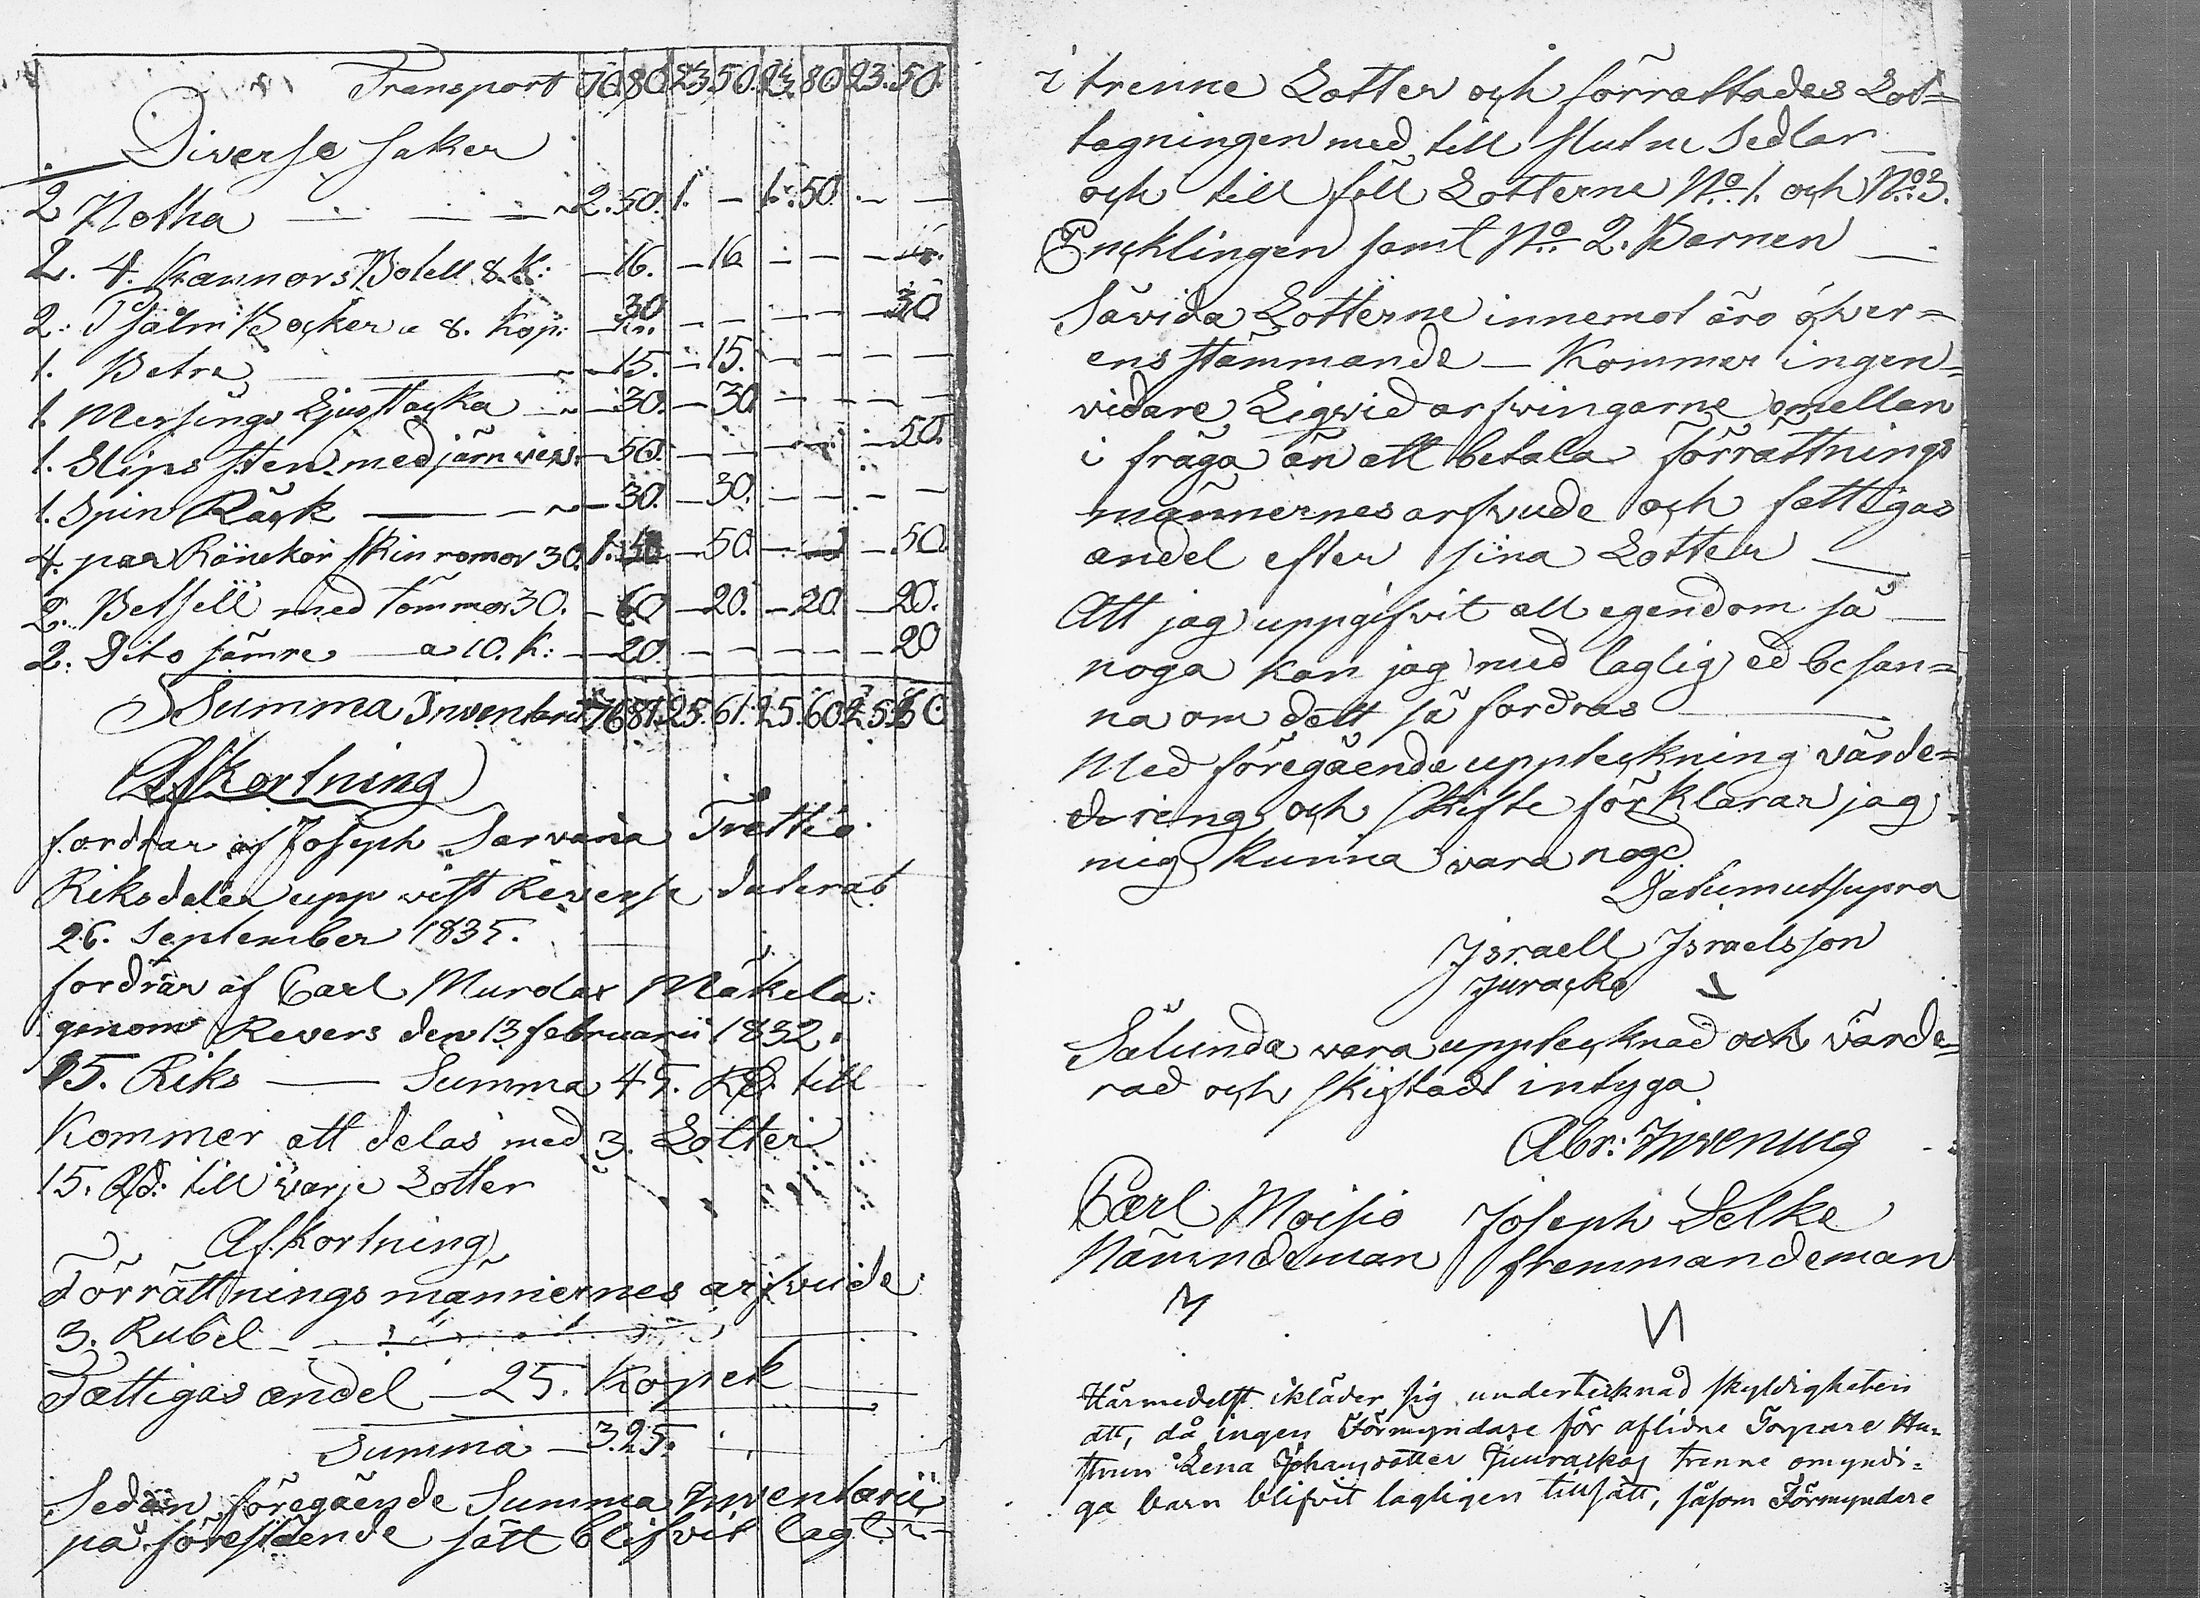 Transport 70 80 23 50. 23 80 23. 50.
Diverse saker
2 Notha — — — 2. 50. 1. — 1. 50. — —
2. 4. Kannors Botell 8. K: — 16. — 16 — — — —
2: Psalm Böcker a 8. Kop: 30 — — — — 30
1. Betre — — 15. — 15. — — — —
1. Mersings Ljusstacka — — 30. — 30 — — — —
1. Slips sten med järn vev: — 50. — — — — — 50.
1. Spin Råck — — 30. — 30. — — — —
4. par skin romor 30. 1. 50 — 50. — — — 50.
2. Betsell med Tömmor 30. — 60 — 20. — 20. — 20.
2. Dito sämre — a 10. k: — 20. — — — — — 20
Summa Inventarii 76 81. 25. 61. 25. 60. 25. 60.
Afkortning
fordrar af Joseph Sarvana Trettio
Riksdaler upp vist Reverse daterat
26. September 1835.
fordrar af Carl Murdar Mäkelä:
genom Revers den 13 februarii 1832.
15. Riks — Summa 45. RD. till
Kommer att delas med 3. Lotter
15. Rd: till varje Lotter
Afkortning
Förrättnings männernes arfvude
3. Rubel — —
Fattigas andel — 25. Kopek —
Summa — 3. 25.
Sedan föregående Summa Inventarii
på förestående sätt blifvit lagt
i trenne Lotter och förrattades Lot=
tagningen med till slutne Sedlar —
och till föll Lotterne No. 1. och No. 3.
Encklingen samt No. 2. Barnen —
Såvida Lotterne innemot äro öfver=
ens stämmande — Kommer ingen=
vidare Liqvid arfvingarne emellan
i fråga än att betala förrättnings
männernes arfvude och fattigas
andel efter sina Lotter —
Att jag uppgifvit all egendom så —
noga kan jag med laglig ed besan=
na om dett så fordras —
Med föregående uppteckning värde=
dering och skifte förklarar jag
mig kunna vara nögd
Datumutsupra
Israell Israelsson
Juracko
Sålunda vara upptecknad och värde=
rad och skiftadt intyga
Abr: Invenius
Carl Moisio Joseph Selke
Nämndeman fremmandeman
Härmedelst ikläder sig undertecknad skyldigheten
att, då ingen Förmyndare för aflidne Torpare Hu=
strun Lena Johansdotter Juurackos trenne omyndi=
ga barn blifvit lagligen tillsatt, såsom Förmyndare